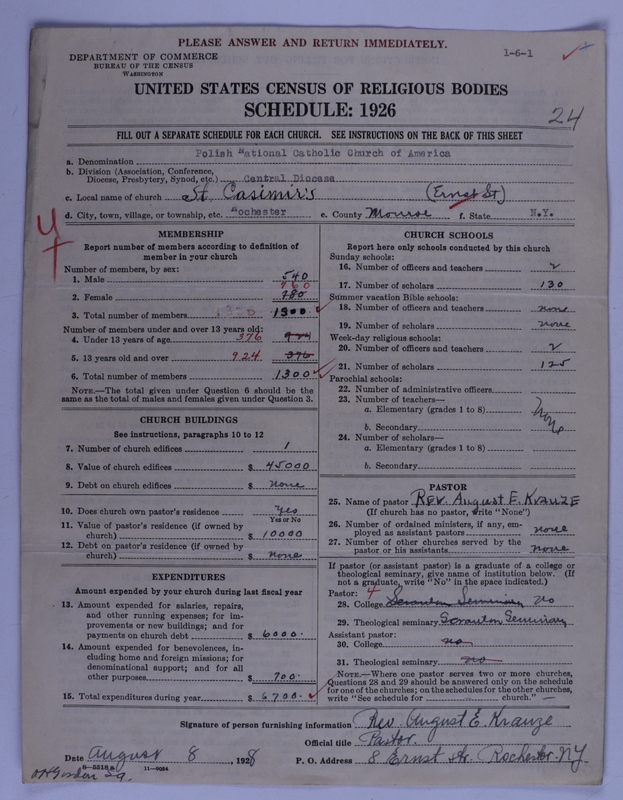 PLEASE ANSWER AND RETURN IMMEDIATELY.
1-6-1
DEPARTMENT OF COMMERCE
BUREAU OF THE CENSUS
WASHINGTON
UNITED STATES CENSUS OF RELIGIOUS BODIES
SCHEDULE: 1926
24
FILL OUT A SEPARATE SCHEDULE FOR EACH CHURCH. SEE INSTRUCTIONS ON THE BACK OF THIS SHEET
a. Denomination Polish National Catholic Church of America
b. Division (Association, Conference,
Diocese, Presbytery, Synod, etc.) Central Diocese
c. Local name of church St. Casimir's (Ernst St)
d. City, town, village, or township, etc. Rochester e. County Monroe f. State N.Y.
MEMBERSHIP
Report number of members according to definition of
member in your church
Number of members, by sex:
1. Male 540
760
2. Female 780
3. Total number of members 1300 1300
Number of members under and over 13 years old:
4. Under 13 years of age 376 924
5. 13 years old and over 924 376
6. Total number of members 1300
NOTE.—The total given under Question 6 should be
same as the total of males and females given under Question 3.
CHURCH BUILDINGS
See instructions, paragraphs 10 to 12
7. Number of church edifices 1
8. Value of church edifices $ 45000
9. Debt on church edifices $ None
10. Does church own pastor's residence Yes
Yes or No
11. Value of pastor's residence (if owned by
church) $ 10000
12. Debt on pastor's residence (if owned by
church) $ none
EXPENDITURES
Amount expended by your church during last fiscal year
13. Amount expended for salaries, repairs,
and other running expenses; for im-
provements or new buildings; and for
payments on church debt $ 6000.
14. Amount expended for benevolences, in-
cluding home and foreign missions; for
denominational support; and for all
other purposes $ 700.
15. Total expenditures during year $ 6700.
CHURCH SCHOOLS
Report here only schools conducted by this church
Sunday schools:
16. Number of officers and teachers 2
17. Number of scholars 130
Summer vacation Bible schools:
18. Number of officers and teachers none
19. Number of scholars none
Week-day religious schools:
20. Number of officers and teachers 2
21. Number of scholars 125
Parochial schools:
22. Number of administrative officers
23. Number of teachers—
a. Elementary (grades 1 to 8) None
b. Secondary
24. Number of scholars—
a. Elementary (grades 1 to 8)
b. Secondary
PASTOR
25. Name of pastor Rev. August E. Krauze
(If church has no pastor, write "None")
26. Number of ordained ministers, if any, em-
ployed as assistant pastors none
27. Number of other churches served by the
pastor or his assistants none
If pastor (or assistant pastor) is a graduate of a college or
theological seminary, give name of institution below. (If
not a graduate, write "No" in the space indicated.)
Pastor: 4
28. College Scranton Seminary No
29. Theological seminary Scranton Seminary
Assistant pastor:
30. College no
31. Theological seminary no
NOTE.—Where one pastor serves two or more churches,
Questions 28 and 29 should be answered only on the schedule
for one of the churches; on the schedules for the other churches,
write "See schedule for church."
Signature of person furnishing information Rev. August E. Krauze
Official title Pastor.
Date August 8, 1928 P. O. Address 8 Ernst St. Rochester. N.Y.
8—5518a 11—9034